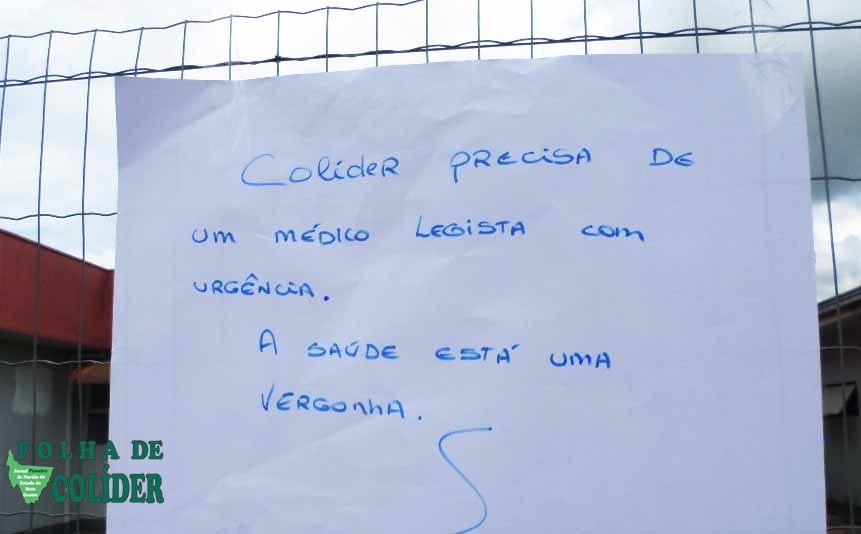 Colíder precisa de
um médico legista com
urgência.
A saúde está uma
vergonha.
FOLHA DE
COLÍDER
Jornal Pioneiro
do Nortão do
Estado de
Mato
Grosso